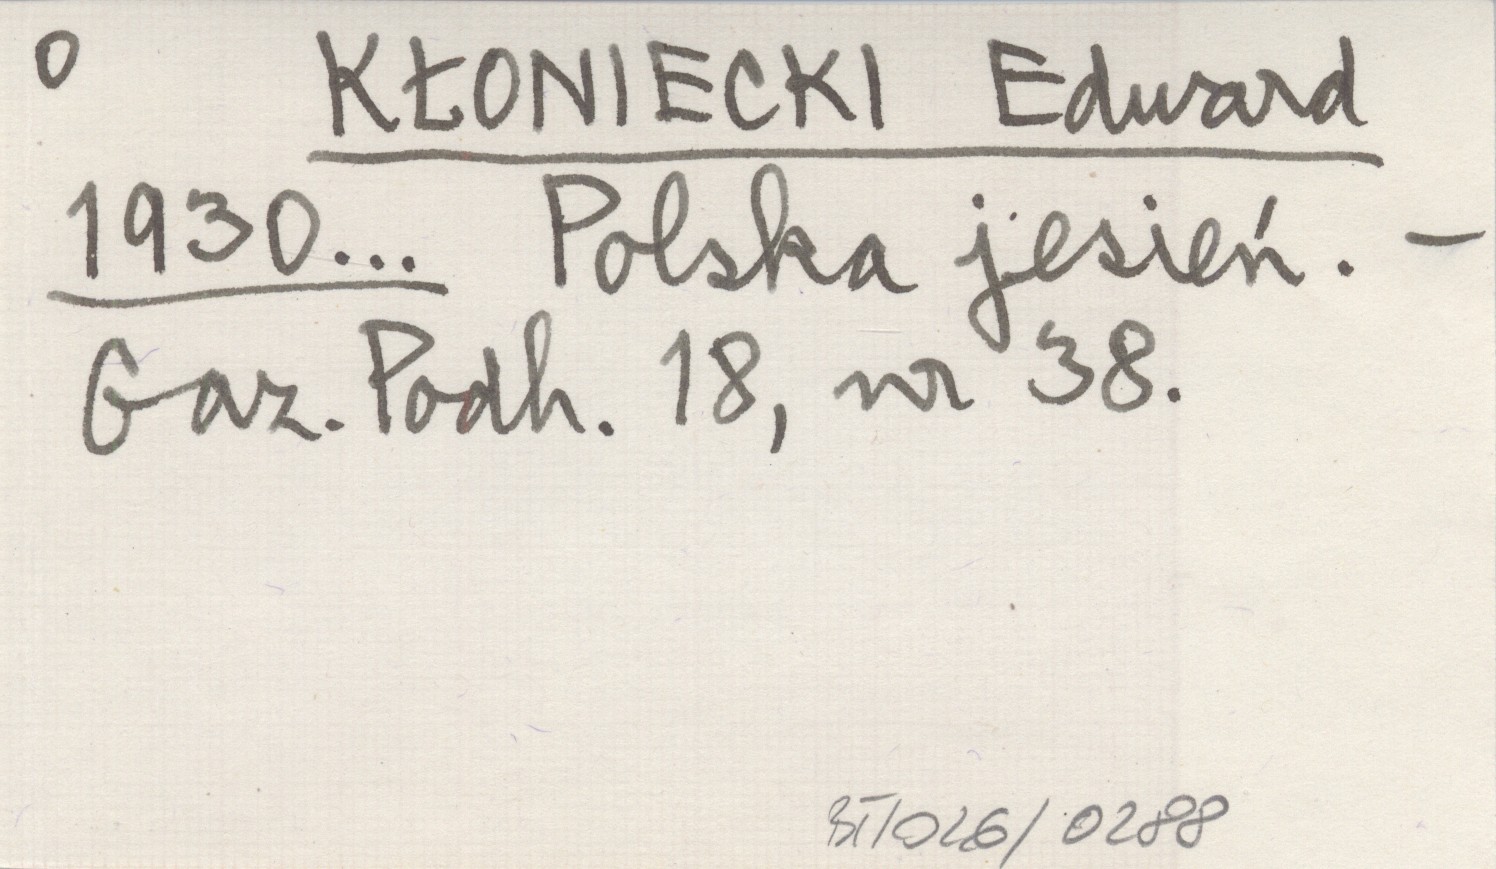 o KŁONIECKI Edward
1930... Polska jesień. –
Gaz. Podh. 18, nr 38.
BT/026/0288